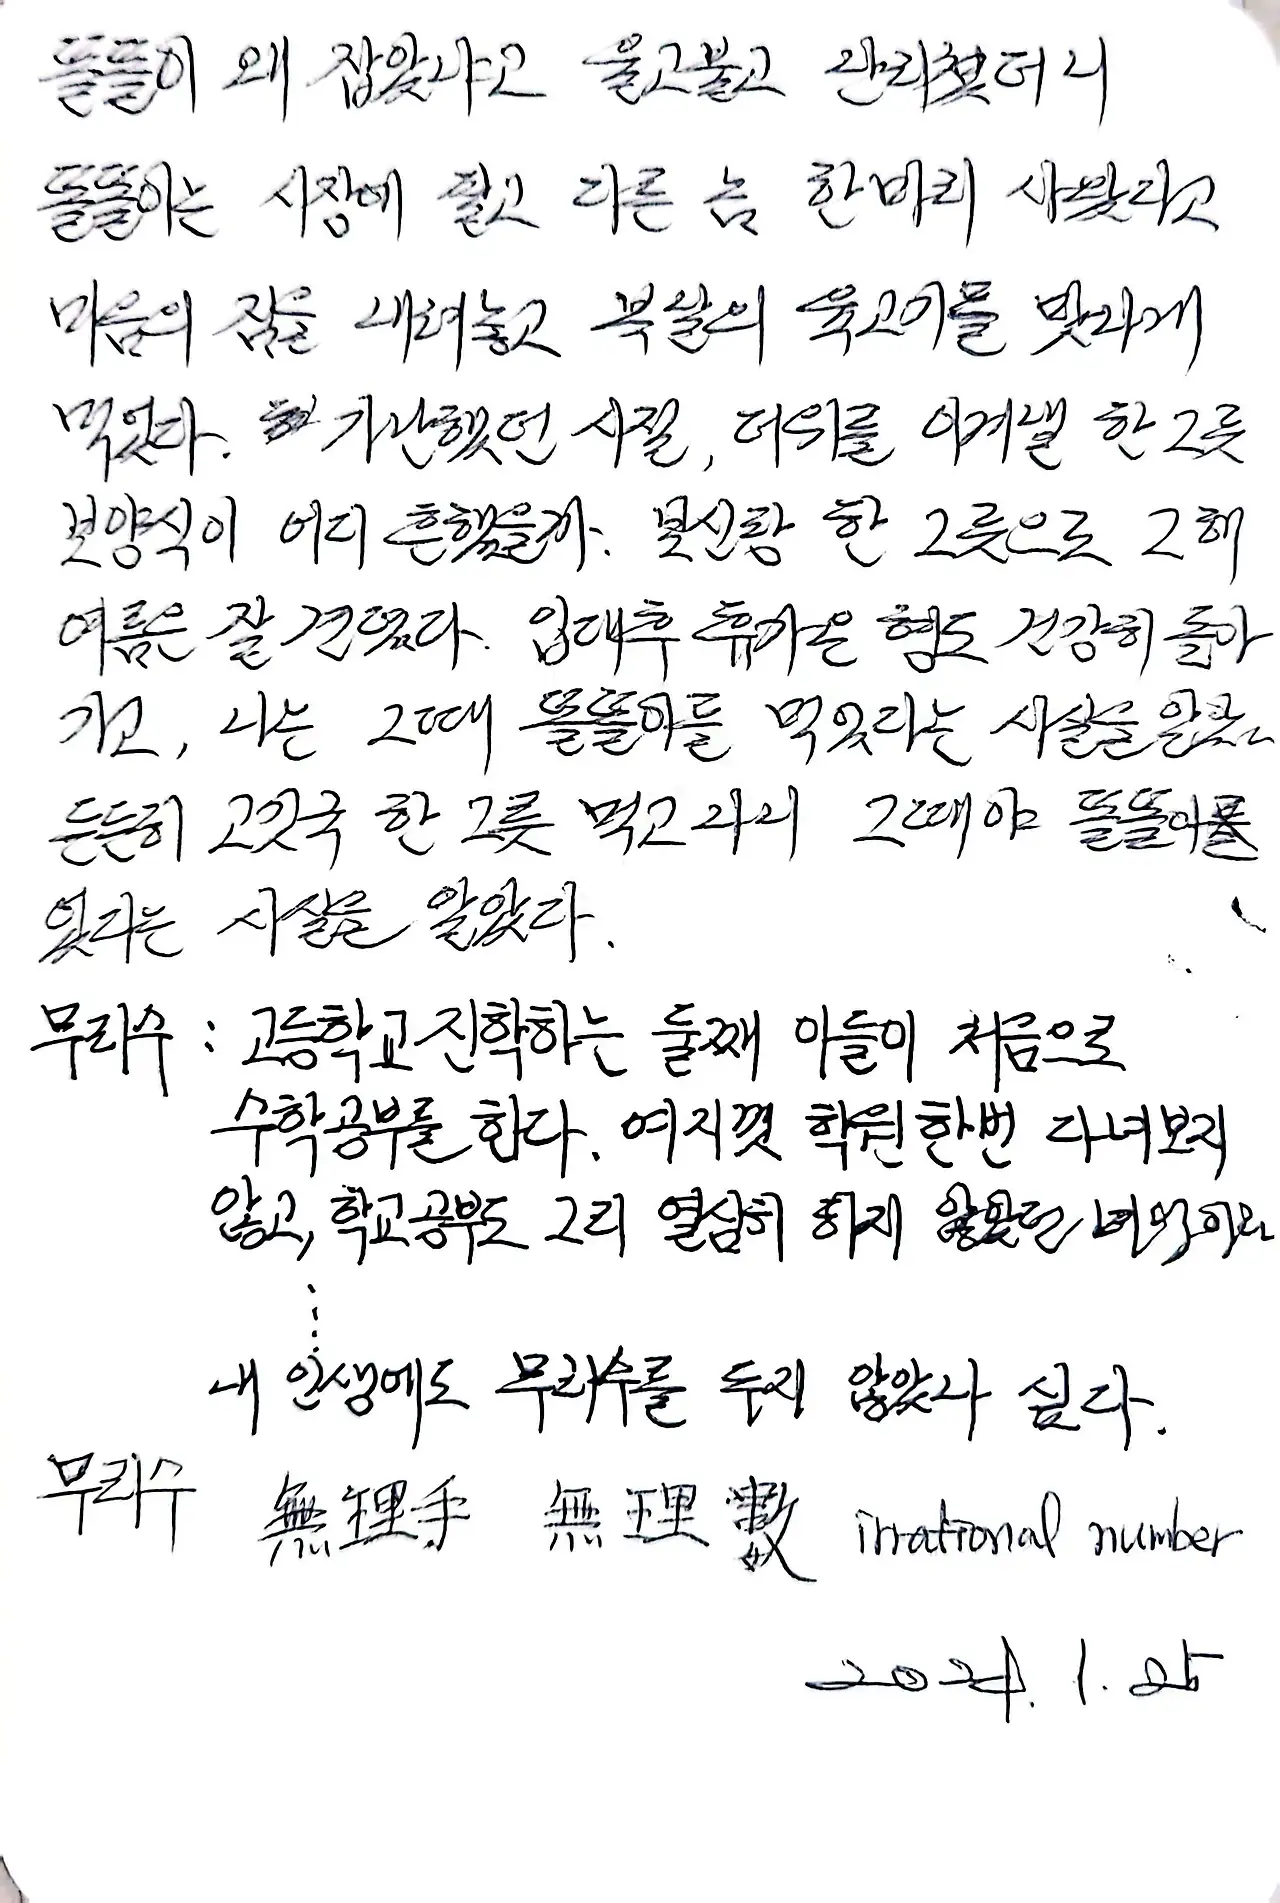 똘똘이 왜 잡았냐고 울고불고 난리쳤더니
똘똘이는 시장에 팔고 다른 놈 한마리 사왔다고
마음의 짐을 내려놓고 복날의 육고기를 맛나게
먹었다. 가난했던 시절, 더위를 이겨낼 한그릇
보양식이 어디 흔했을까. 보신탕 한 그릇으로 그해
여름은 잘 견뎠다. 입대후 휴가온 형도 건강히 돌아
가고, 나는 그때 똘똘이를 먹었다는 사실을
든든히 고깃국 한 그릇 먹고 나니 그때야 똘똘이를
잊었다는 사실을 알았다.
무리수 : 고등학교 진학하는 둘째 아들이 처음으로
수학공부를 한다. 여지껏 학원 한번 다녀보지
않고, 학교공부도 그리 열심히 하지 않았던 녀석이라
⋮
내 인생에도 무리수를 두지 않았나 싶다.
무리수 無理手 無理數 irrational number
2021. 1. 25